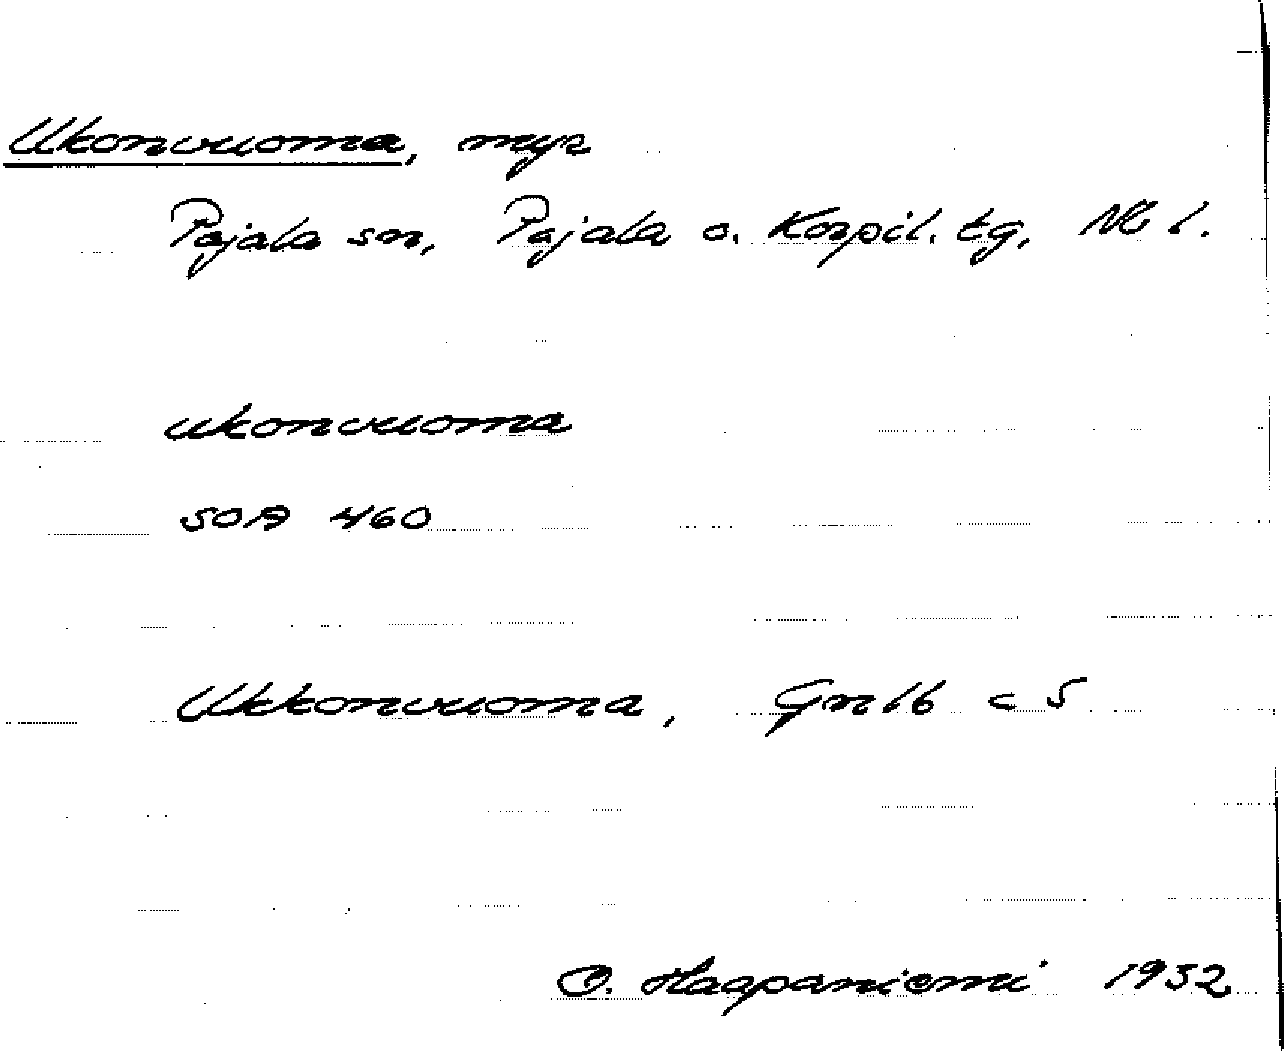 Ukonvuoma, myr
Pajala sn, Pajala o. Korpil. tg, Nb l.
ukonvuoma
SOA 460
Ukkonvuoma, Gnlb c 5
O. Haapaniemi 1932